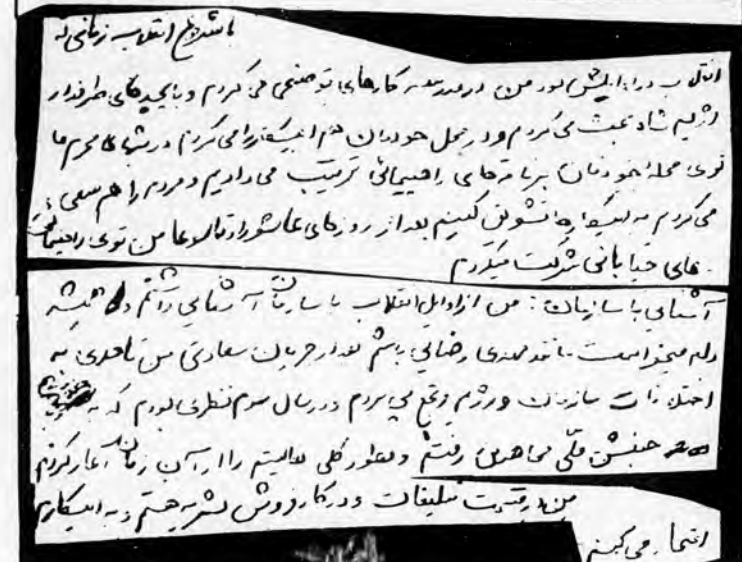 با شروع انقلاب زمانی که
انقلاب در اوایلش بود من در مدرسه کارهای توضیحی می کردم و با بچه های طرفدار
رژیم شاه بحث می کردم و در محل خودمان هم اینکار را می کردم در شبهای محرم ما
توی محله خودمان برنامه های راهپیمائی ترتیب می دادیم و مردم را هم سعی
می کردم به اینکارها تشویق کنیم بعد از روزهای عاشورا و تاسوعا من توی راهپیمائی
های خیابانی شرکت میکردم
آشنایی با سازمان: من از اوایل انقلاب با سازمان آشنایی داشتم و همیشه
دلم میخواست مانند مهدی رضایی باشم بعد از جریان سعادتی من تا حدی به
اختلافات سازمان و رژیم وقع پی بردم و در سال سوم نظری بودم که به
جنبش ملی مجاهدین رفتم و بطور کلی فعالیتم را از آن زمان آغار کردم
من در قسمت تبلیغات و در کار فروش نشریه هستم و به اینکارم
افتخار می کنم